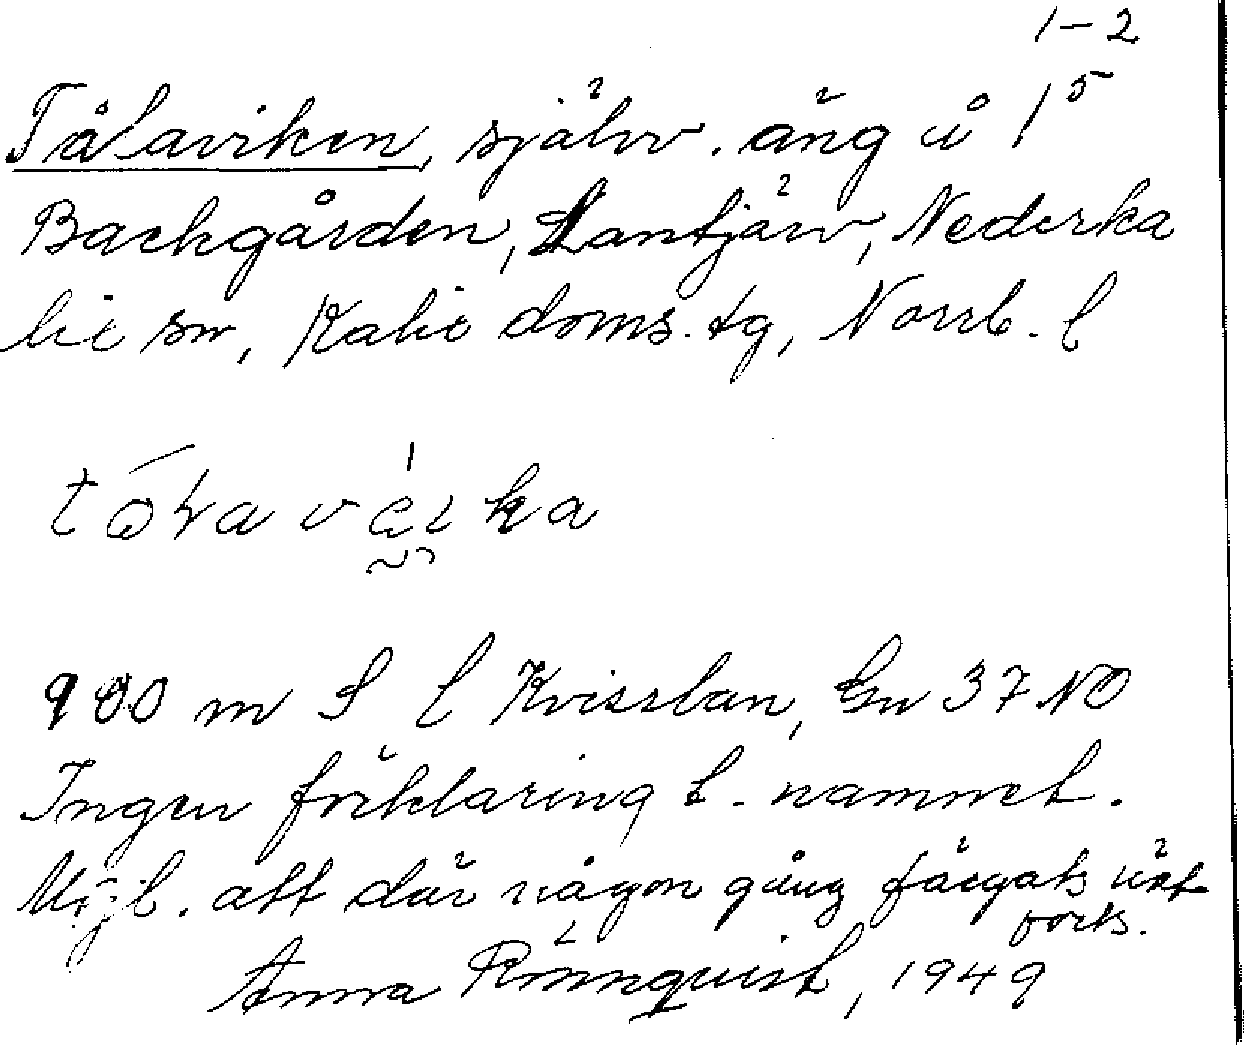 1-2
Tålaviken, självv. äng å 1⁵
Backgården, Lantjärv, Nederka
lix sn, Kalix doms. tg, Norrb. l
900 m S l Kvissslan, Gn 37 NO
Ingen förklaring t. namnet.
Möjl. att där någon gång färgats nät
forts.
Anna Rönnquist, 1949